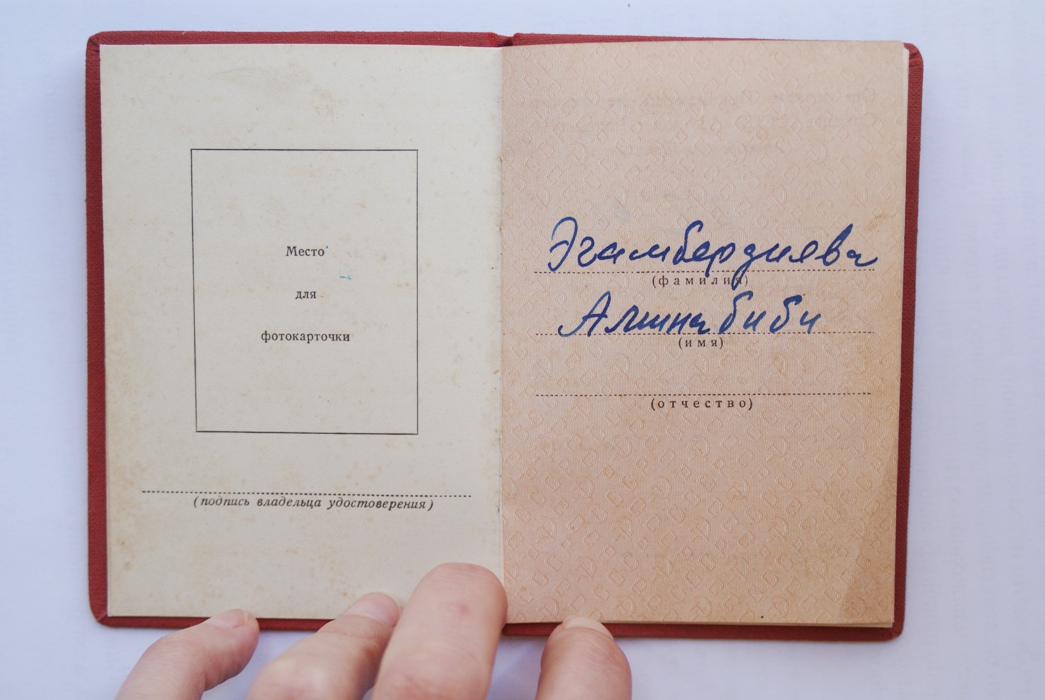 Место
для
фотокарточки
(подпись владельца удостоверения)
Эгамбердиева
(фамилия)
Алтинабиби
(имя)
(отчество)